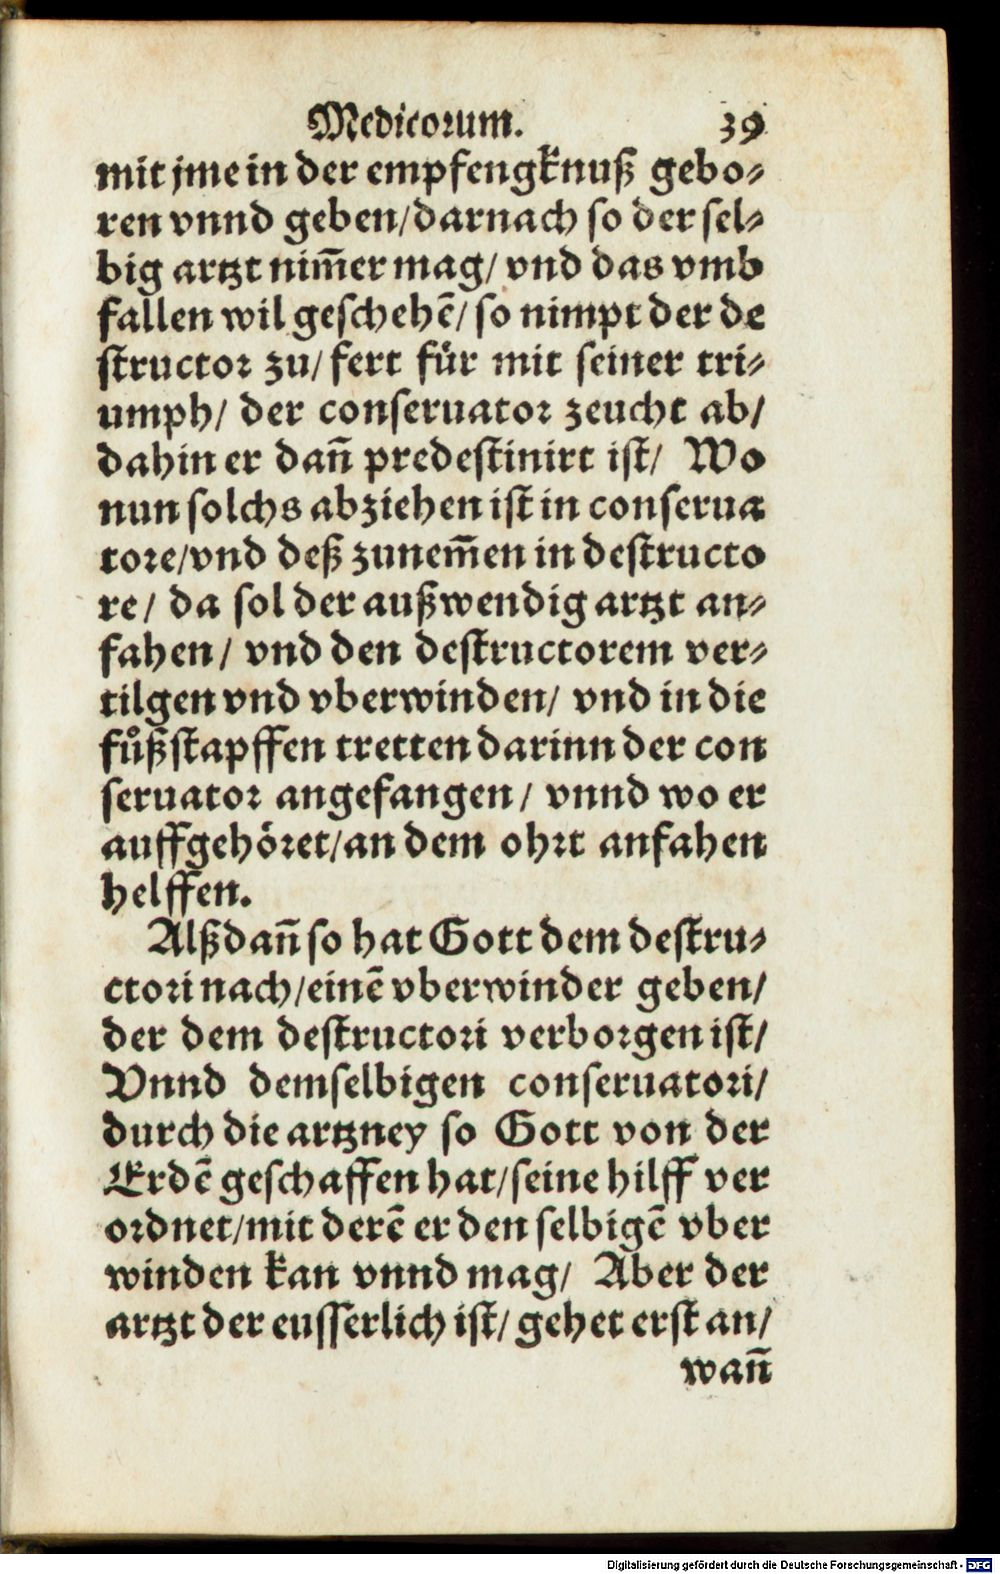 Medicorum. 39
mit jme in der empfengknuß gebo⸗
ren vnnd geben/darnach so der sel⸗
big artzt nim̄er mag/ vnd das vmb
fallen wil geschehẽ/ so nimpt der de
structor zu/ fert für mit seiner tri⸗
umph/ der conseruator zeucht ab/
dahin er dañ predestinirt ist/ Wo
nun solchs abziehen ist in conserua
tore/vnd deß zunem̄en in destructo
re/ da sol der außwendig artzt an⸗
fahen/ vnd den destructorem ver⸗
tilgen vnd vberwinden/ vnd in die
fůßstapffen tretten darinn der con
seruator angefangen/ vnnd wo er
auffgehöret/an dem ohrt anfahen
helffen.
Alßdañ so hat Gott dem destru⸗
ctori nach/einẽ vberwinder geben/
der dem destructori verborgen ist/
Vnnd demselbigen conseruatori/
durch die artzney so Gott von der
Erdẽ geschaffen hat/seine hilff ver
ordnet/mit derẽ er den selbigẽ vber
winden kan vnnd mag/ Aber der
artzt der eusserlich ist/ gehet erst an/
wañ
Digitalisierung gefördert durch die Deutsche Forschungsgemeinschaft - DFG